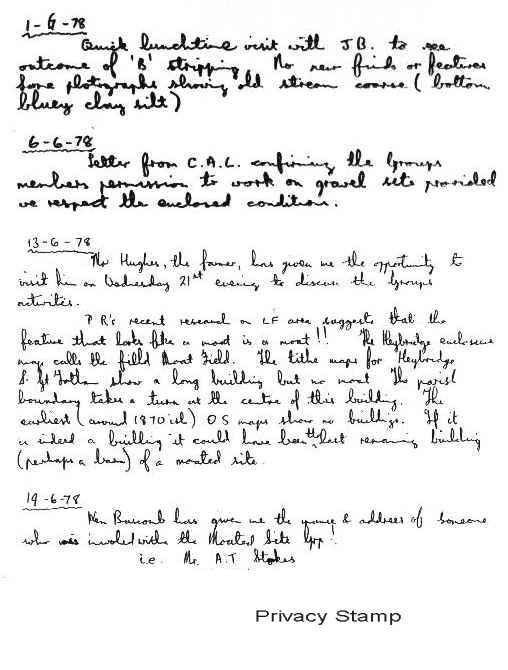 1-6-78
Quick lunchtime visit with J B. to see
outcome of 'B' stripping. No new finds or features
Some photographs showing old stream course (bottom
bluey clay silt)
6-6-78
Letter from C.A.G. confirming the Groups
members permission to work on gravel site provided
we respect the enclosed conditions.
13-6-78
Mr Hughes, the farmer, has given me the opportunity to
visit him on Wednesday 21st evening to discuss the Groups
activities.
P R's recent research on LF area suggests that the
feature that looks like a moat is a moat!! The Heybridge enclosure
map calls the field Moat Field. The tithe maps for Heybridge
& Gt Totham show a long building but no moat The parish
boundary takes a turn at the centre of this building. The
earliest (around 1870 ish) O S maps show no buildings. If it
is indeed a building it could have been the last remaining building
(perhaps a barn) of a moated site.
19-6-78
Ken Bascomb has given me the name & address of someone
who was involved with the Moated Site Grp!
i.e. Mr. A.T. Stokes
Privacy Stamp